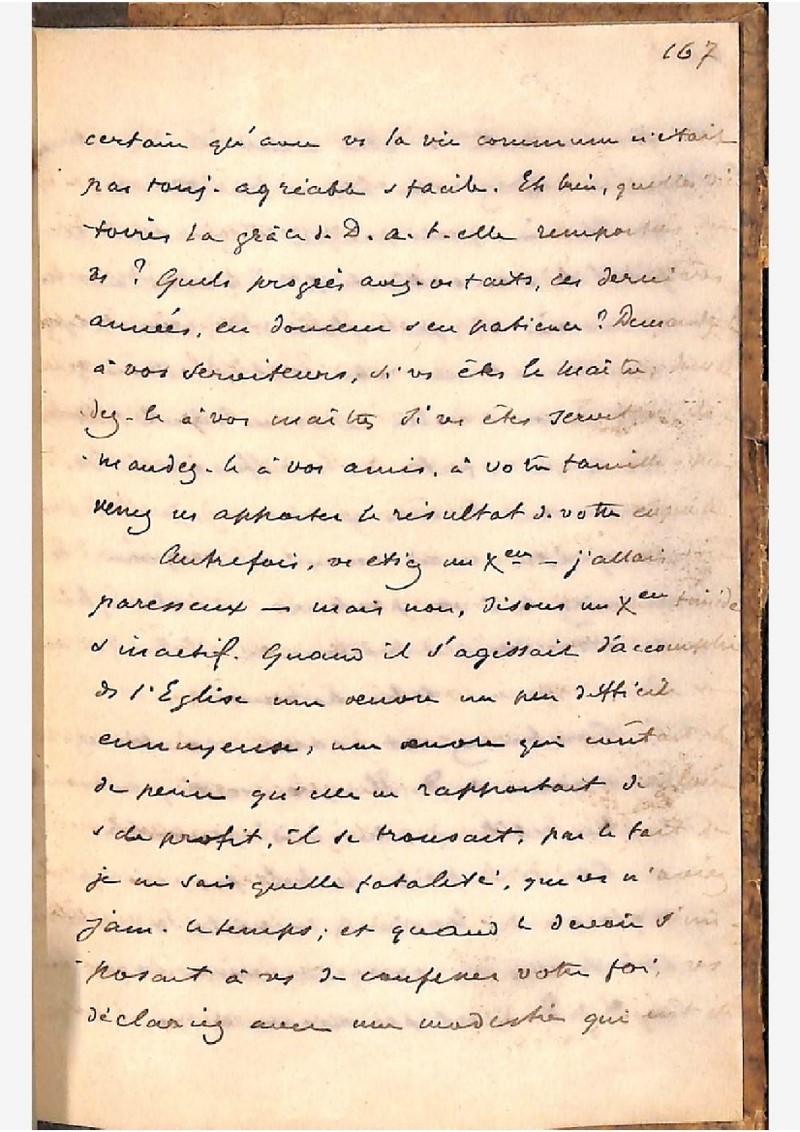 167
certain qu'avec vs la vie commune n'était
pas touj. agréable & facile. Eh bien, quelles vic
toires la grâce d. D. a. t. elle rempor
vs ? Quels progrès avez-vs faits, ces dernières
années, en douceur & en patience ? Demandez l
à vos serviteurs, si vs êtes le maître,
dez-le à vos maîtres si vs êtes servit
mandez-le à vos amis, à votre famille
venez ns apporter le résultat d. votre
Autrefois, vs étiez un Xen — j'allais
paresseux — mais non, disons un Xen timide
& inactif. Quand il s'agissait d'accomplir
ds l'Eglise une œuvre un peu difficile
ennuyeuse, une œuvre qui coût
de peine qu'elle ne rapportait de gloire
& de profit, il se trouvait, par le fait de
je ne sais quelle fatalité, que vs n'aviez
jam. le temps ; et quand le devoir s'im
posait à vs de confesser votre foi, vs
déclariez avec une modestie qui